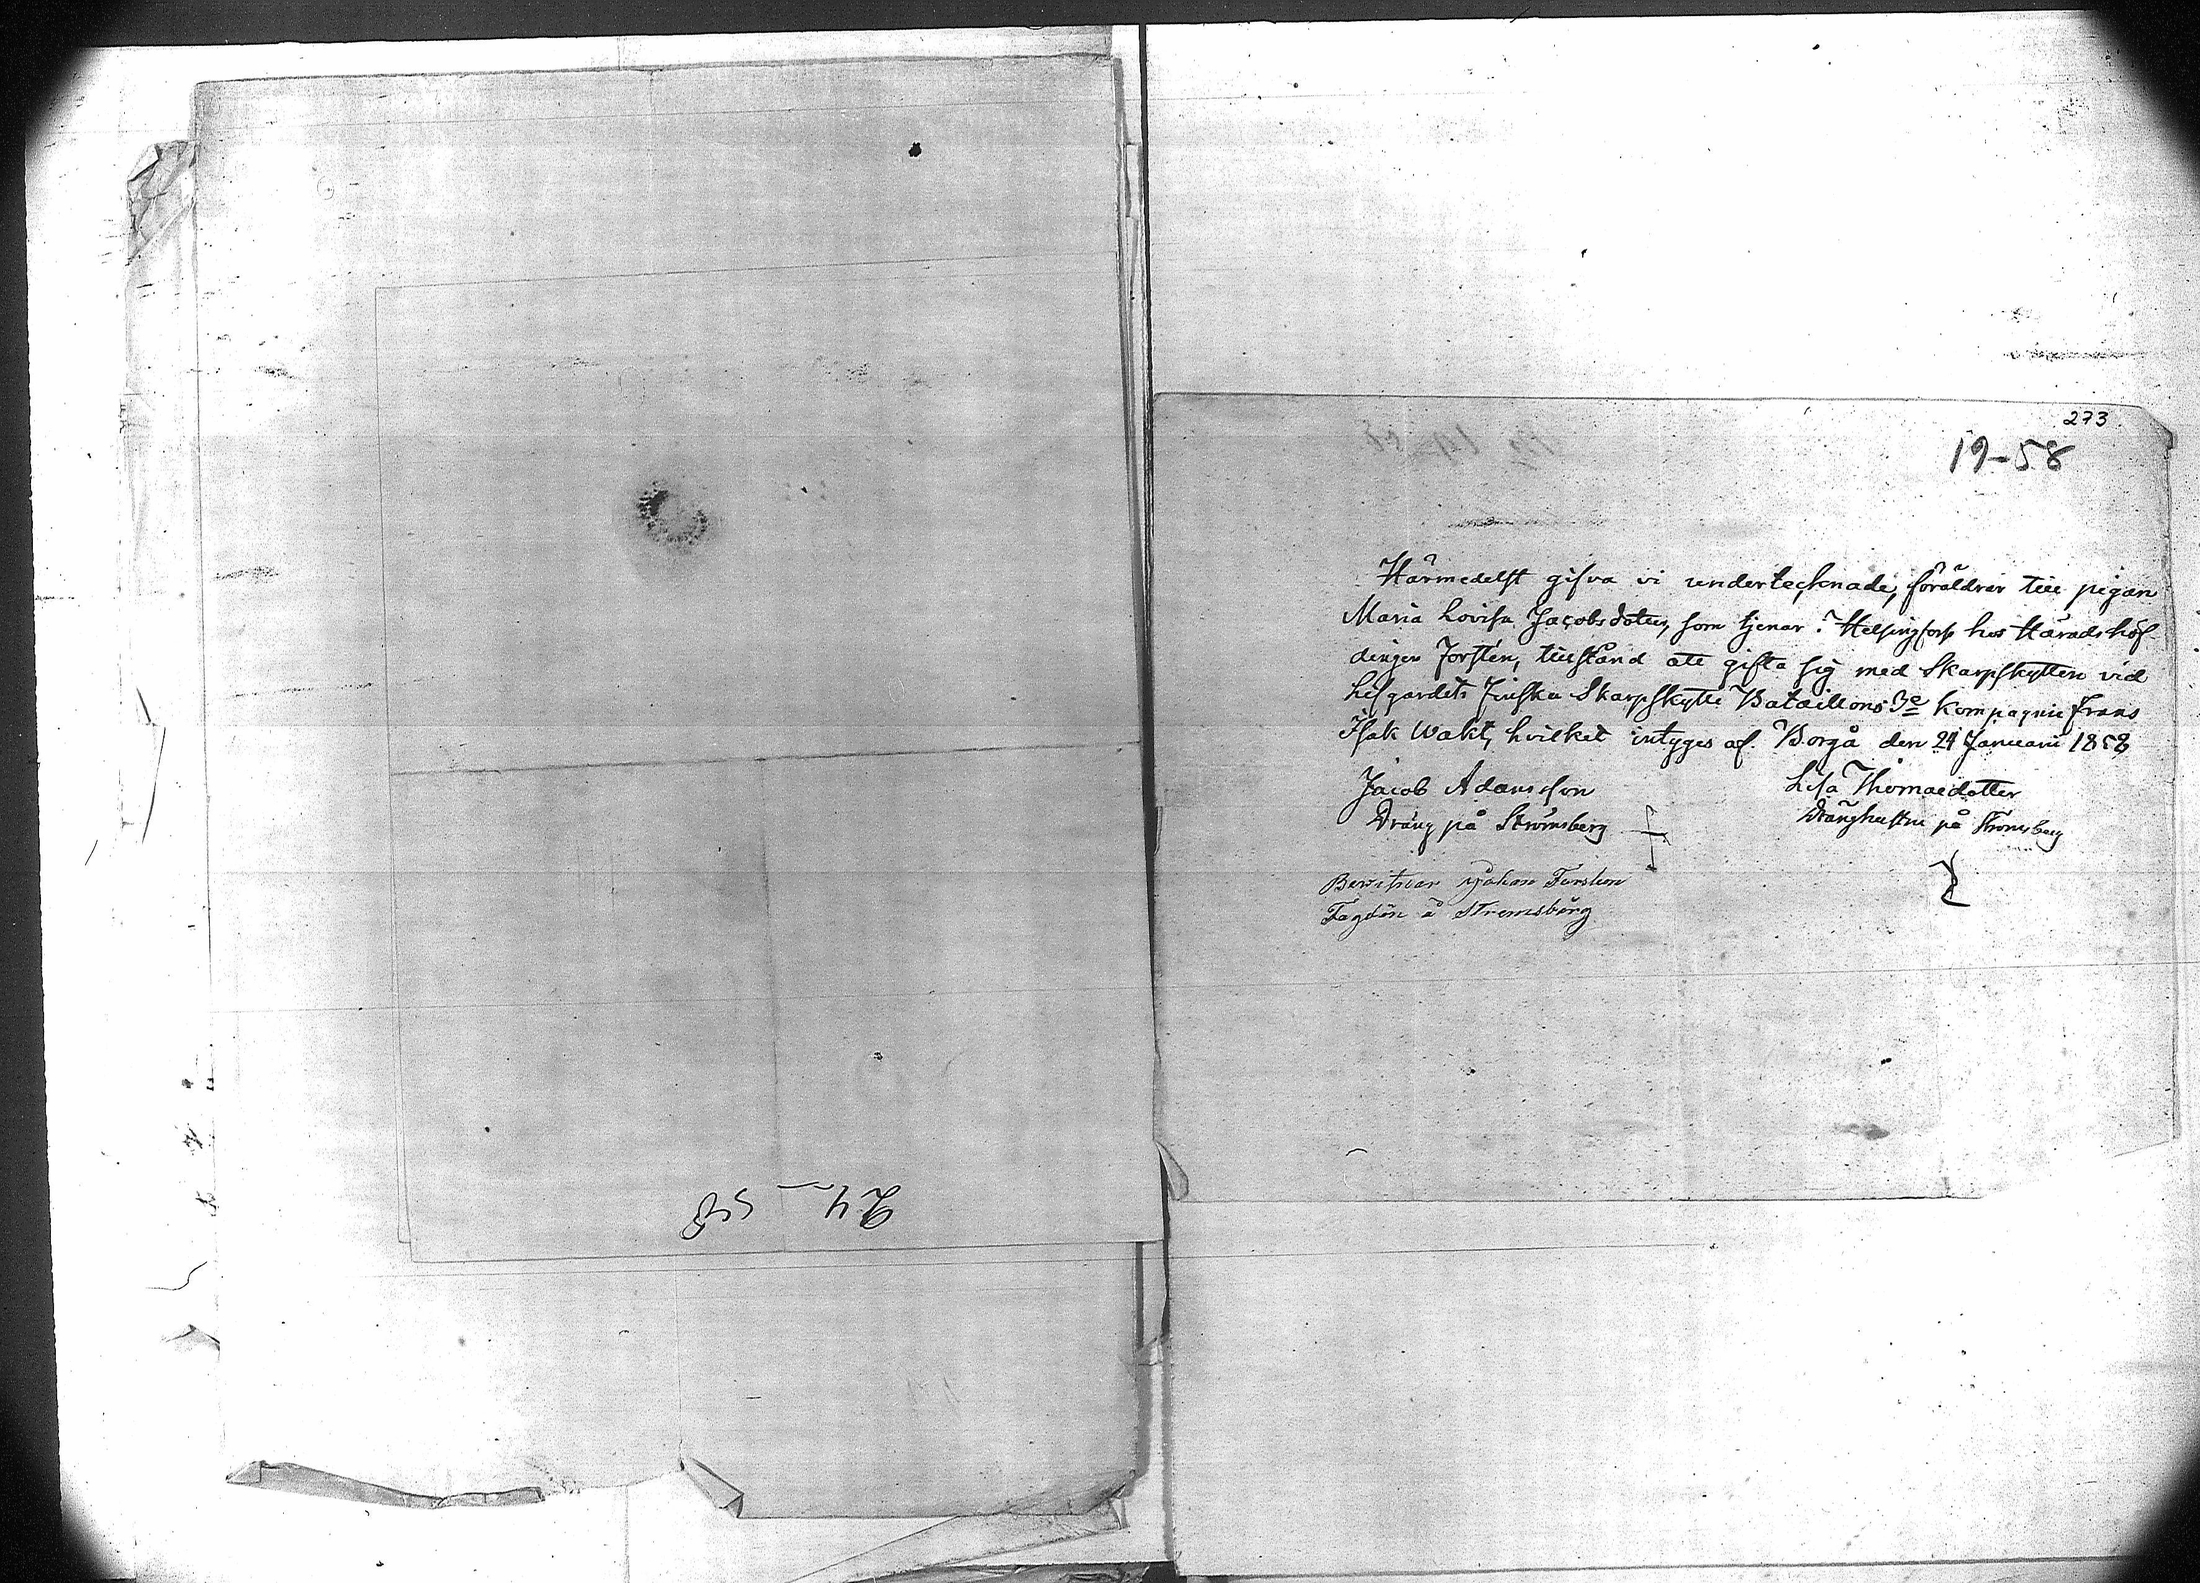 24-58
273
19-58
Härmedelst gifva vi undertecknade, föräldrar till pigan
Maria Lovisa Jacobsdotter, som tjenar i Helsingfors hos Häradshöf-
dingen Forstén, tillstånd att gifta sig med Skarpskytten vid
Lifgardets Finska Skarpskytte Bataillons 3e Kompagnie Frans
Isak Wakt, hvilket intyges af. Borgå den 21 Januari 1858
Jacob Adamsson
Dräng på Strömsberg
Lisa Thomaedotter
Dränghustru på Strömsberg
Bewitnar Johan
å Strömsbärg